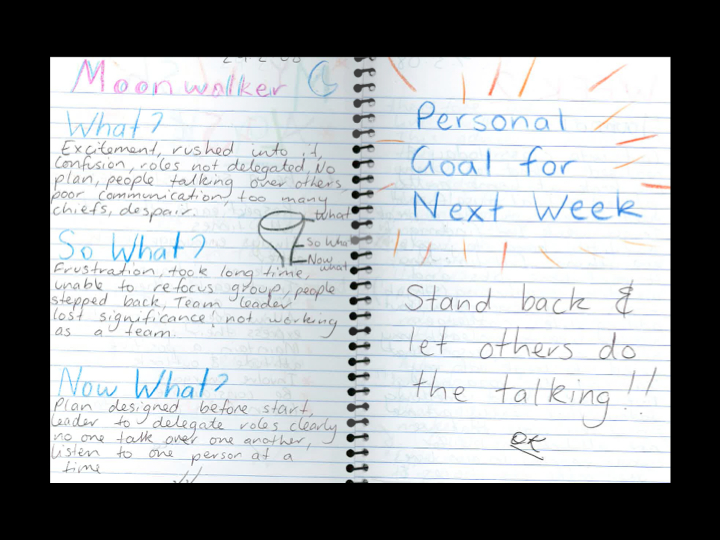 Moonwalker
What?
Excitement, rushed into it,
Confusion, roles not delegated, No
plan, people talking over others,
poor communication, too many
chiefs, despair.
What
So What
Now
what
So What?
Frustration, took long time,
unable to refocus group, people
stepped back, Team leader
lost significance! not working
as a team.
Now What?
Plan designed before start,
leader to delegate roles clearly
no one talk over one another,
listen to one person at a
time
Personal
Goal for
Next Week
Stand back &
let others do
the talking!!